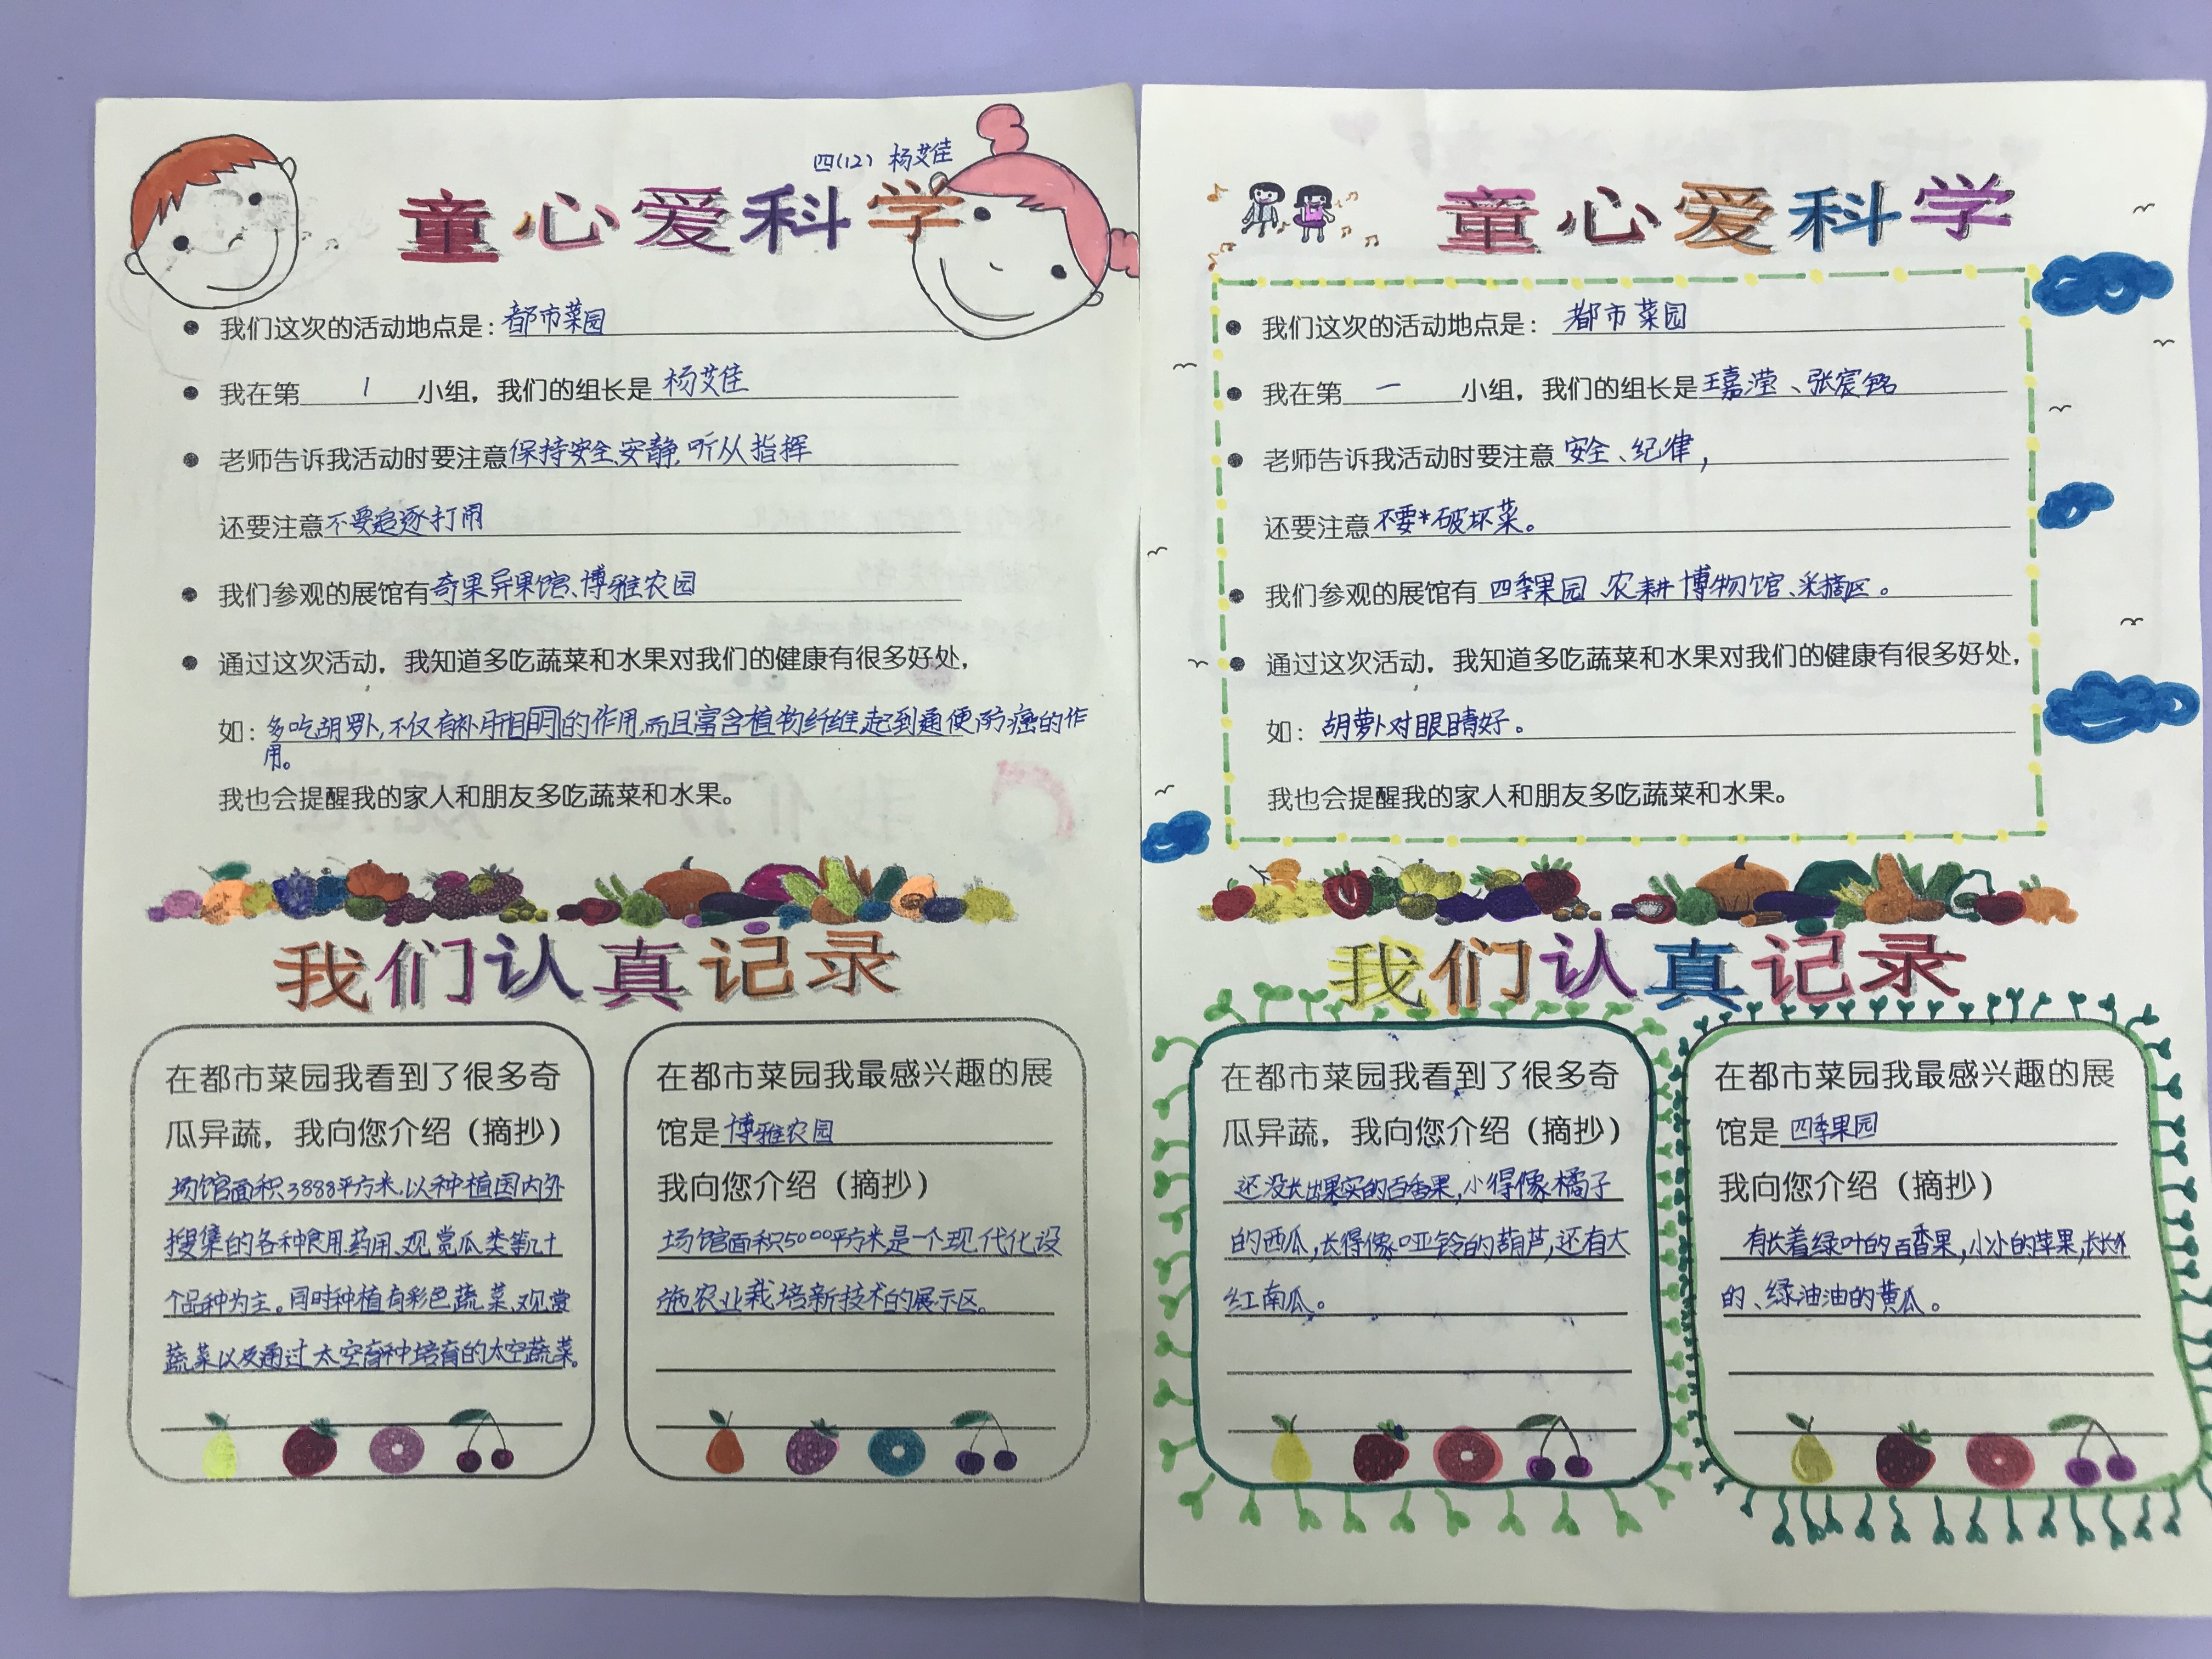 四(12) 杨艾佳
童心爱科学
我们这次的活动地点是：都市菜园
我在第1小组，我们的组长是杨艾佳
老师告诉我活动时要注意保持安全、安静，听从指挥
还要注意不要追逐打闹
我们参观的展馆有奇果异果馆、博雅农园
通过这次活动，我知道多吃蔬菜和水果对我们的健康有很多好处，
如：多吃胡罗卜，不仅有补肝明目的作用，而且富含植物纤维，起到通便防癌的作
用。
我也会提醒我的家人和朋友多吃蔬菜和水果。
我们认真记录
在都市菜园我看到了很多奇
瓜异蔬，我向您介绍（摘抄）
场馆面积3888平方米，以种植国内外
搜集的各种食用、药用、观赏瓜类等几十
个品种为主。同时种植有彩色蔬菜、观赏
蔬菜以及通过太空育种培育的太空蔬菜。
在都市菜园我最感兴趣的展
馆是博雅农园
我向您介绍（摘抄）
场馆面积5000平方米是一个现代化设
施农业栽培新技术的展示区。
童心爱科学
我们这次的活动地点是：都市菜园
我在第一小组，我们的组长是王嘉滢、张宸铭
老师告诉我活动时要注意安全、纪律，
还要注意不要*破坏菜。
我们参观的展馆有四季果园、农耕博物馆、采摘区。
通过这次活动，我知道多吃蔬菜和水果对我们的健康有很多好处，
如：胡萝卜对眼睛好。
我也会提醒我的家人和朋友多吃蔬菜和水果。
我们认真记录
在都市菜园我看到了很多奇
瓜异蔬，我向您介绍（摘抄）
还没长出果实的百香果，小得像橘子
的西瓜，长得像哑铃的葫芦，还有大
红南瓜。
在都市菜园我最感兴趣的展
馆是四季果园
我向您介绍（摘抄）
有长着绿叶的百香果，小小的苹果，长长
的、绿油油的黄瓜。